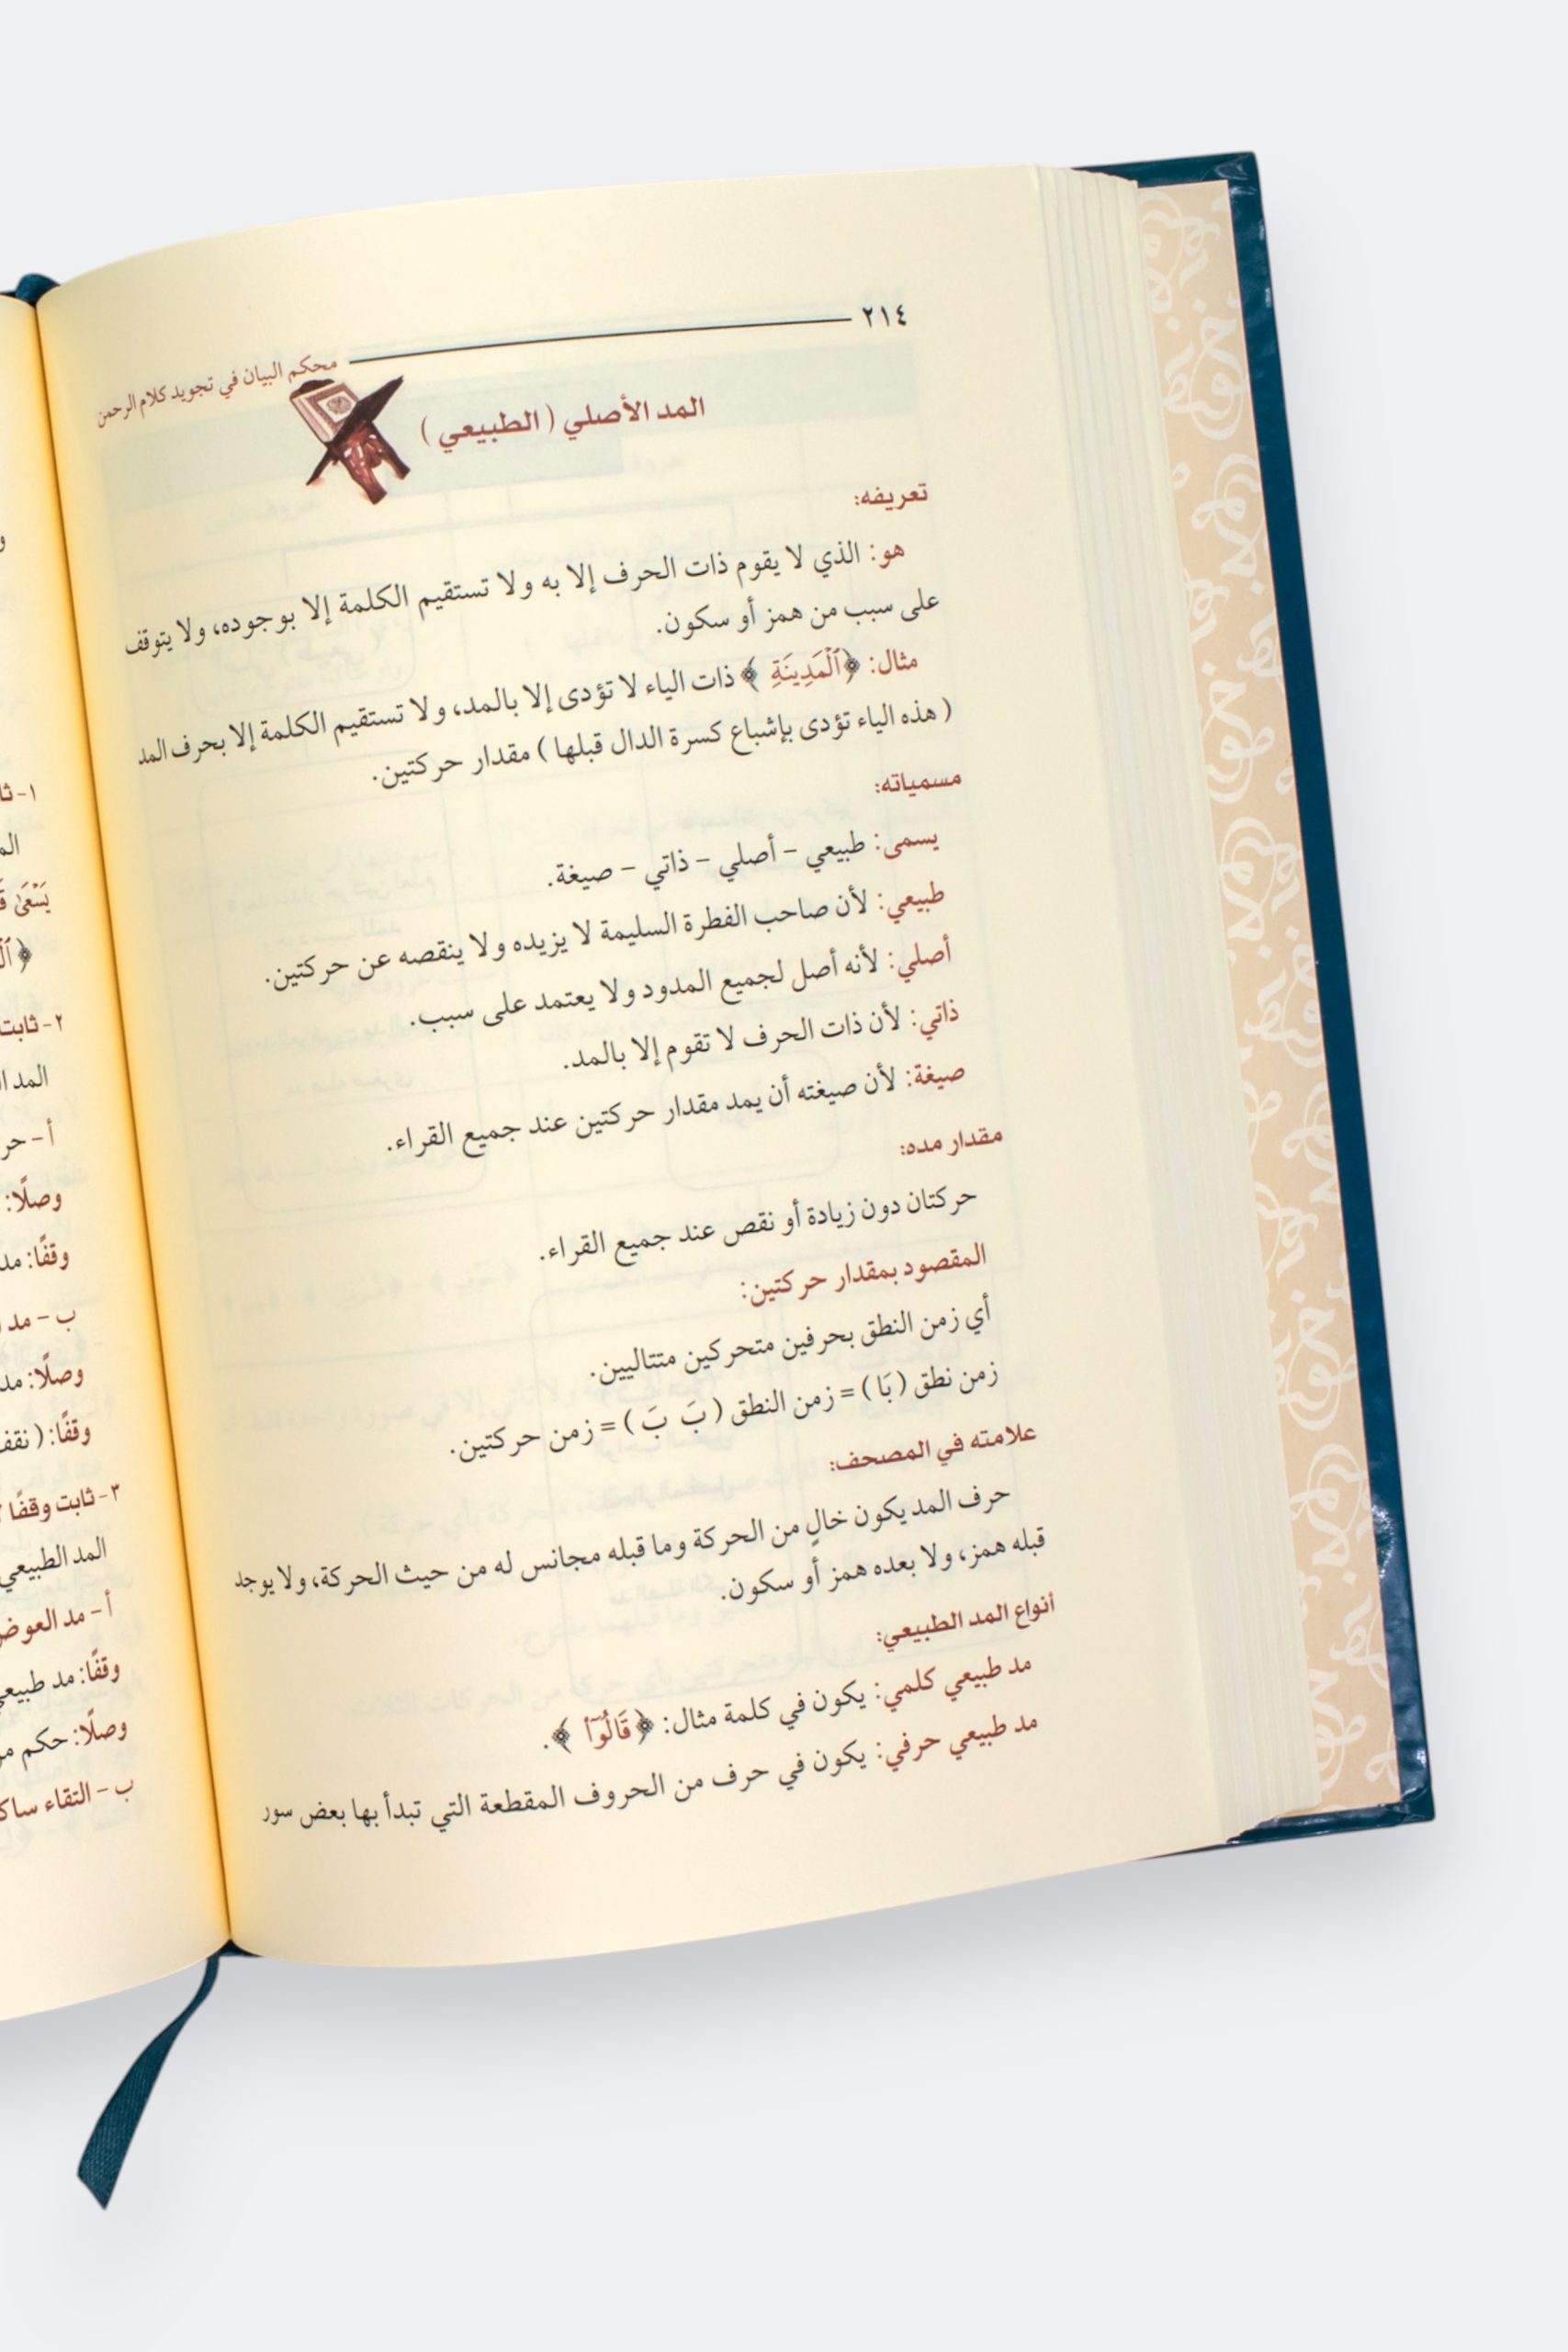 ٢١٤
محكم البيان في تجويد كلام الرحمن
المد الأصلي ( الطبيعي )
تعريفه:
هو: الذي لا يقوم ذات الحرف إلا به ولا تستقيم الكلمة إلا بوجوده، ولا يتوقف
على سبب من همز أو سكون.
مثال: ﴿ٱلْمَدِينَةِ﴾ ذات الياء لا تؤدى إلا بالمد، ولا تستقيم الكلمة إلا بحرف المد
( هذه الياء تؤدى بإشباع كسرة الدال قبلها ) مقدار حركتين.
مسمياته:
يسمى: طبيعي - أصلي - ذاتي - صيغة.
طبيعي: لأن صاحب الفطرة السليمة لا يزيده ولا ينقصه عن حركتين.
أصلي: لأنه أصل لجميع المدود ولا يعتمد على سبب.
ذاتي: لأن ذات الحرف لا تقوم إلا بالمد.
صيغة: لأن صيغته أن يمد مقدار حركتين عند جميع القراء.
مقدار مده:
حركتان دون زيادة أو نقص عند جميع القراء.
المقصود بمقدار حركتين:
أي زمن النطق بحرفين متحركين متتاليين.
زمن نطق ( بَا ) = زمن النطق ( بَ بَ ) = زمن حركتين.
علامته في المصحف:
حرف المد يكون خالٍ من الحركة وما قبله مجانس له من حيث الحركة، ولا يوجد
قبله همز، ولا بعده همز أو سكون.
أنواع المد الطبيعي:
مد طبيعي كلمي: يكون في كلمة مثال: ﴿قَالُوٓا۟﴾.
مد طبيعي حرفي: يكون في حرف من الحروف المقطعة التي تبدأ بها بعض سور
١-
يَسْعَىٰ
٢- ثابت
أ -
وصلًا:
وقفًا: مد
ب - مد
وصلًا: مد
وقفًا: (
٣- ثابت وقفًا
المد الطبيعي
أ - مد العوض
وقفًا: مد طبيعي
وصلًا: حكم
ب - التقاء